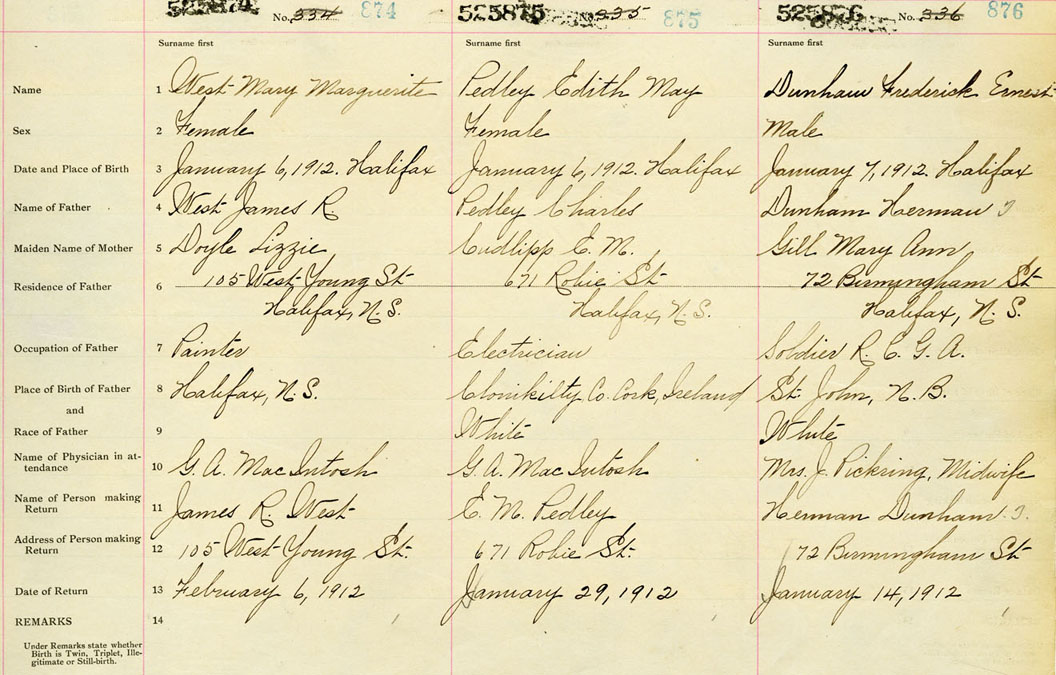 525874 No. 334 874 525875 No. 335 875 525876 No. 336 876
Surname first Surname first Surname first
Name 1 West Mary Marguerite Pedley Edith May Dunham Frederick Ernest
Sex 2 Female Female Male
Date and Place of Birth 3 January 6, 1912. Halifax January 6, 1912. Halifax January 7, 1912. Halifax
Name of Father 4 West James R. Pedley Charles Dunham Herman
Maiden Name of Mother 5 Doyle Lizzie Cudlipp E. M. Gill Mary Ann
Residence of Father 6 105 West Young St 671 Robie St 72 Birmingham St
Halifax, N.S. Halifax, N.S. Halifax, N.S.
Occupation of Father 7 Painter Electrician Soldier R. C. G. A.
Place of Birth of Father 8 Halifax, N.S. Clonikilty Co. Cork, Ireland St. John, N.B.
and
Race of Father 9 White White
Name of Physician in at-
tendance 10 G. A. MacIntosh G. A. MacIntosh Mrs. J. Pickring, Midwife
Name of Person making
Return 11 James R. West E. M. Pedley Herman Dunham
Address of Person making
Return 12 105 West Young St. 671 Robie St. 72 Birmingham St
Date of Return 13 February 6, 1912 January 29, 1912 January 14, 1912
REMARKS 14
Under Remarks state whether
Birth is Twin, Triplet, Ille-
gitimate or Still-birth.